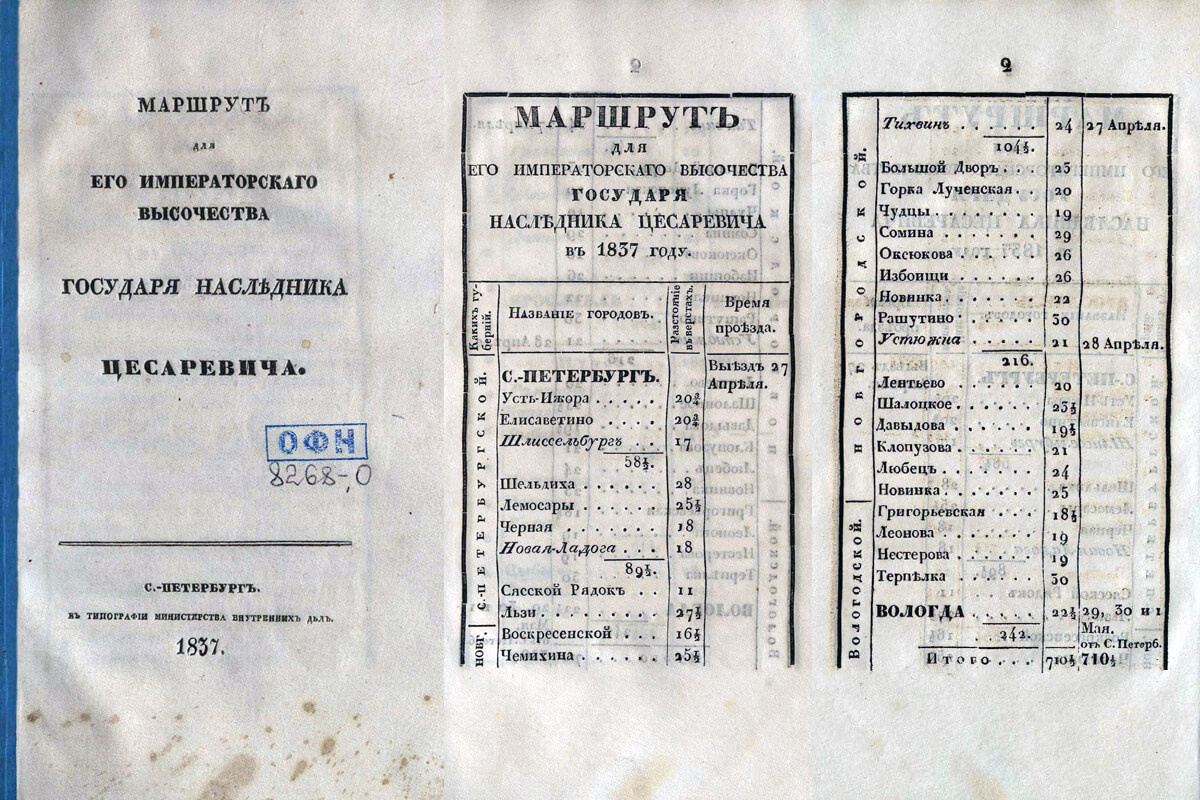 МАРШРУТЪ
для
ЕГО ИМПЕРАТОРСКАГО
ВЫСОЧЕСТВА
ГОСУДАРЯ НАСЛѢДНИКА
ЦЕСАРЕВИЧА.
ОФН
8268-0
С.-ПЕТЕРБУРГЪ.
ВЪ ТИПОГРАФІИ МИНИСТЕРСТВА ВНУТРЕННИХЪ ДѢЛЪ.
1837.
МАРШРУТЪ
для
ЕГО ИМПЕРАТОРСКАГО ВЫСОЧЕСТВА
ГОСУДАРЯ
НАСЛѢДНИКА ЦЕСАРЕВИЧА
въ 1837 году.
Какихъ гу-
берній.
Названіе городовъ.
Разстояніе
въ верстахъ.
Время
проѣзда.
С.-ПЕТЕРБУРГСКОЙ.
С.-ПЕТЕРБУРГЪ. Выѣздъ 27
Апрѣля.
Усть-Ижора . . . . . 20¾
Елисаветино . . . . . 20¾
Шлиссельбургъ . . 17
58½.
Шельдиха . . . . . . 28
Лемосары . . . . . . 25½
Черная . . . . . . 18
Новая-Ладога . . . 18
89½.
Сясской Рядокъ . . 11
Льзи . . . . . . . 27½
НОВГ.
Воскресенской . . . 16½
Чемихина . . . . . . 25½
2
НОВОГОРОДСКОЙ.
Тихвинъ . . . . . . 24 27 Апрѣля.
104½.
Большой Дворъ . . . 25
Горка Лученская . . 20
Чудцы . . . . . . . 19
Сомина . . . . . . 29
Оксюкова . . . . . 26
Избоищи . . . . . . 26
Новинка . . . . . . 22
Рашутино . . . . . 30
Устюжна . . . . . . 21 28 Апрѣля.
216.
Лентьево . . . . . 20
Шалоцкое . . . . . . 23½
Давыдова . . . . . 19½
Клопузова . . . . . 21
Любецъ . . . . . . 24
Новинка . . . . . . 25
Вологодской.
Григорьевская . . . 18½
Леонова . . . . . . 19
Нестерова . . . . . 19
Терпѣлка . . . . . 30
ВОЛОГДА . . . . . 22½ 29, 30 и 1
Мая.
242. отъ С. Петерб.
Итого . . . 710½ 710½